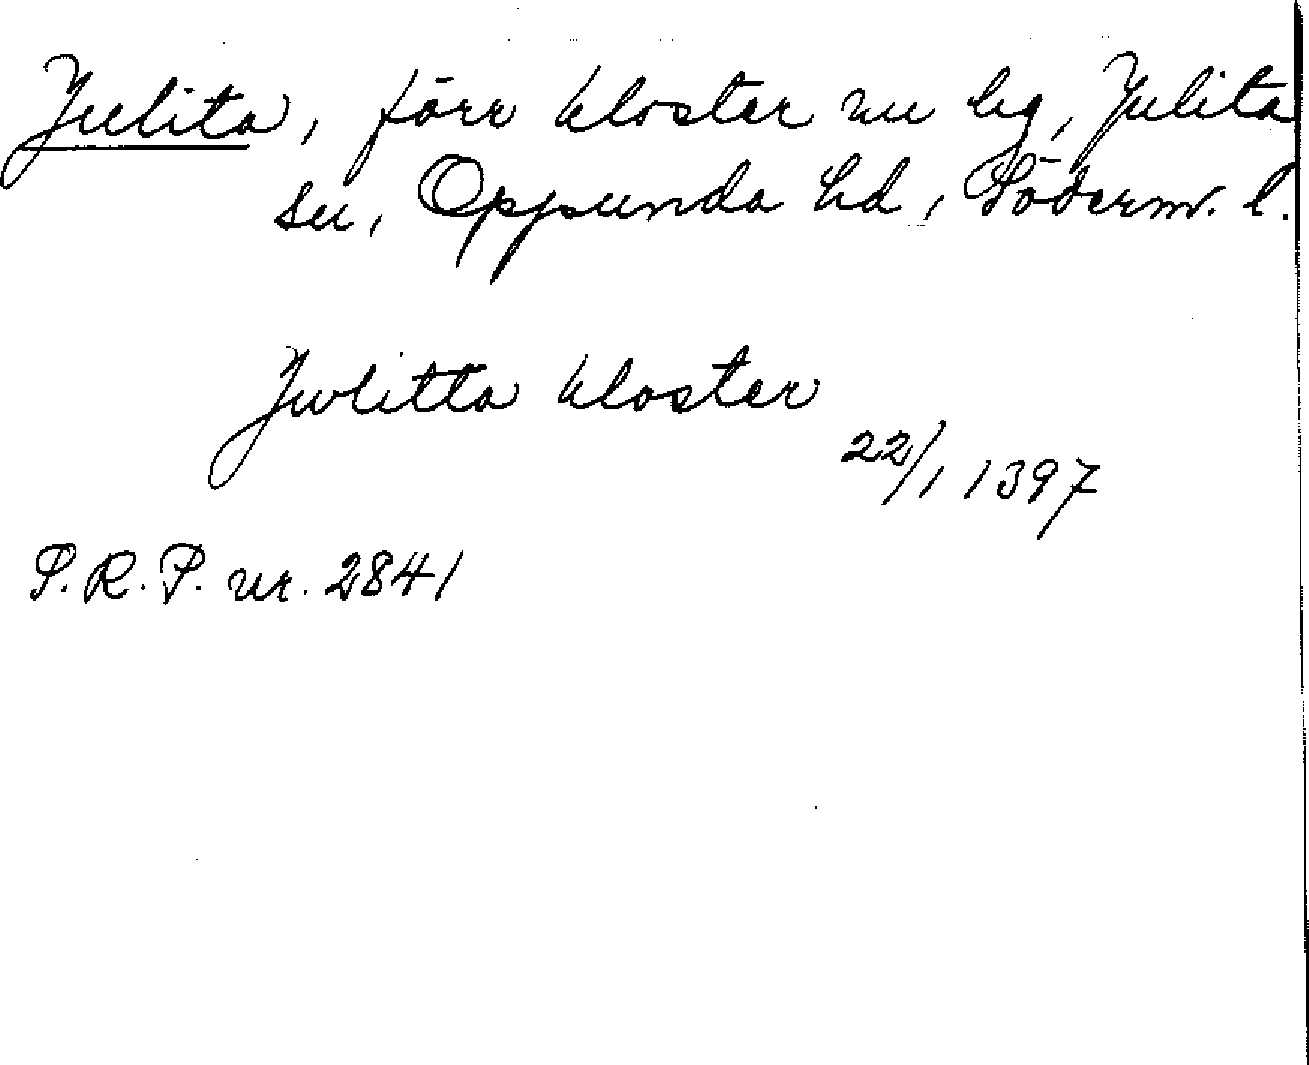 Julita, förr kloster nu hg, Julita
sn, Oppunda hd, Söderm. l.
Jwlitta kloster
22/1 1397
S.R.P. nr. 2841